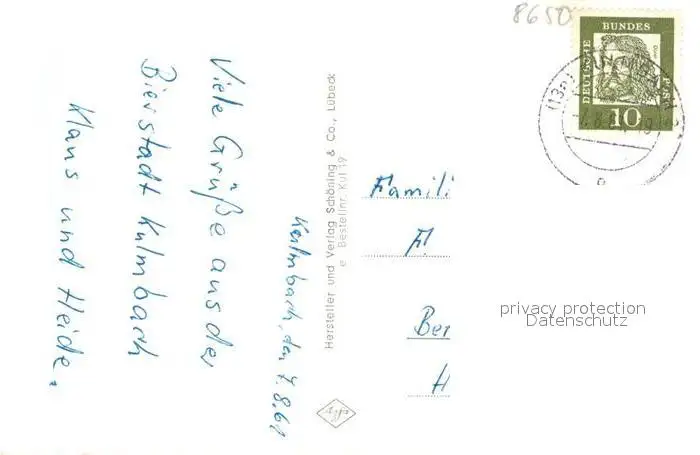 8650
DEUTSCHE BUNDESPOST
10
Kulmbach, den 7.8.61
Viele Grüße aus der
Bierstadt Kulmbach
Klaus und Heide.
Hersteller und Verlag Schöning & Co., Lübeck
Bestellnr. Kul 19
Famili
F
Ber
H
privacy protection
Datenschutz